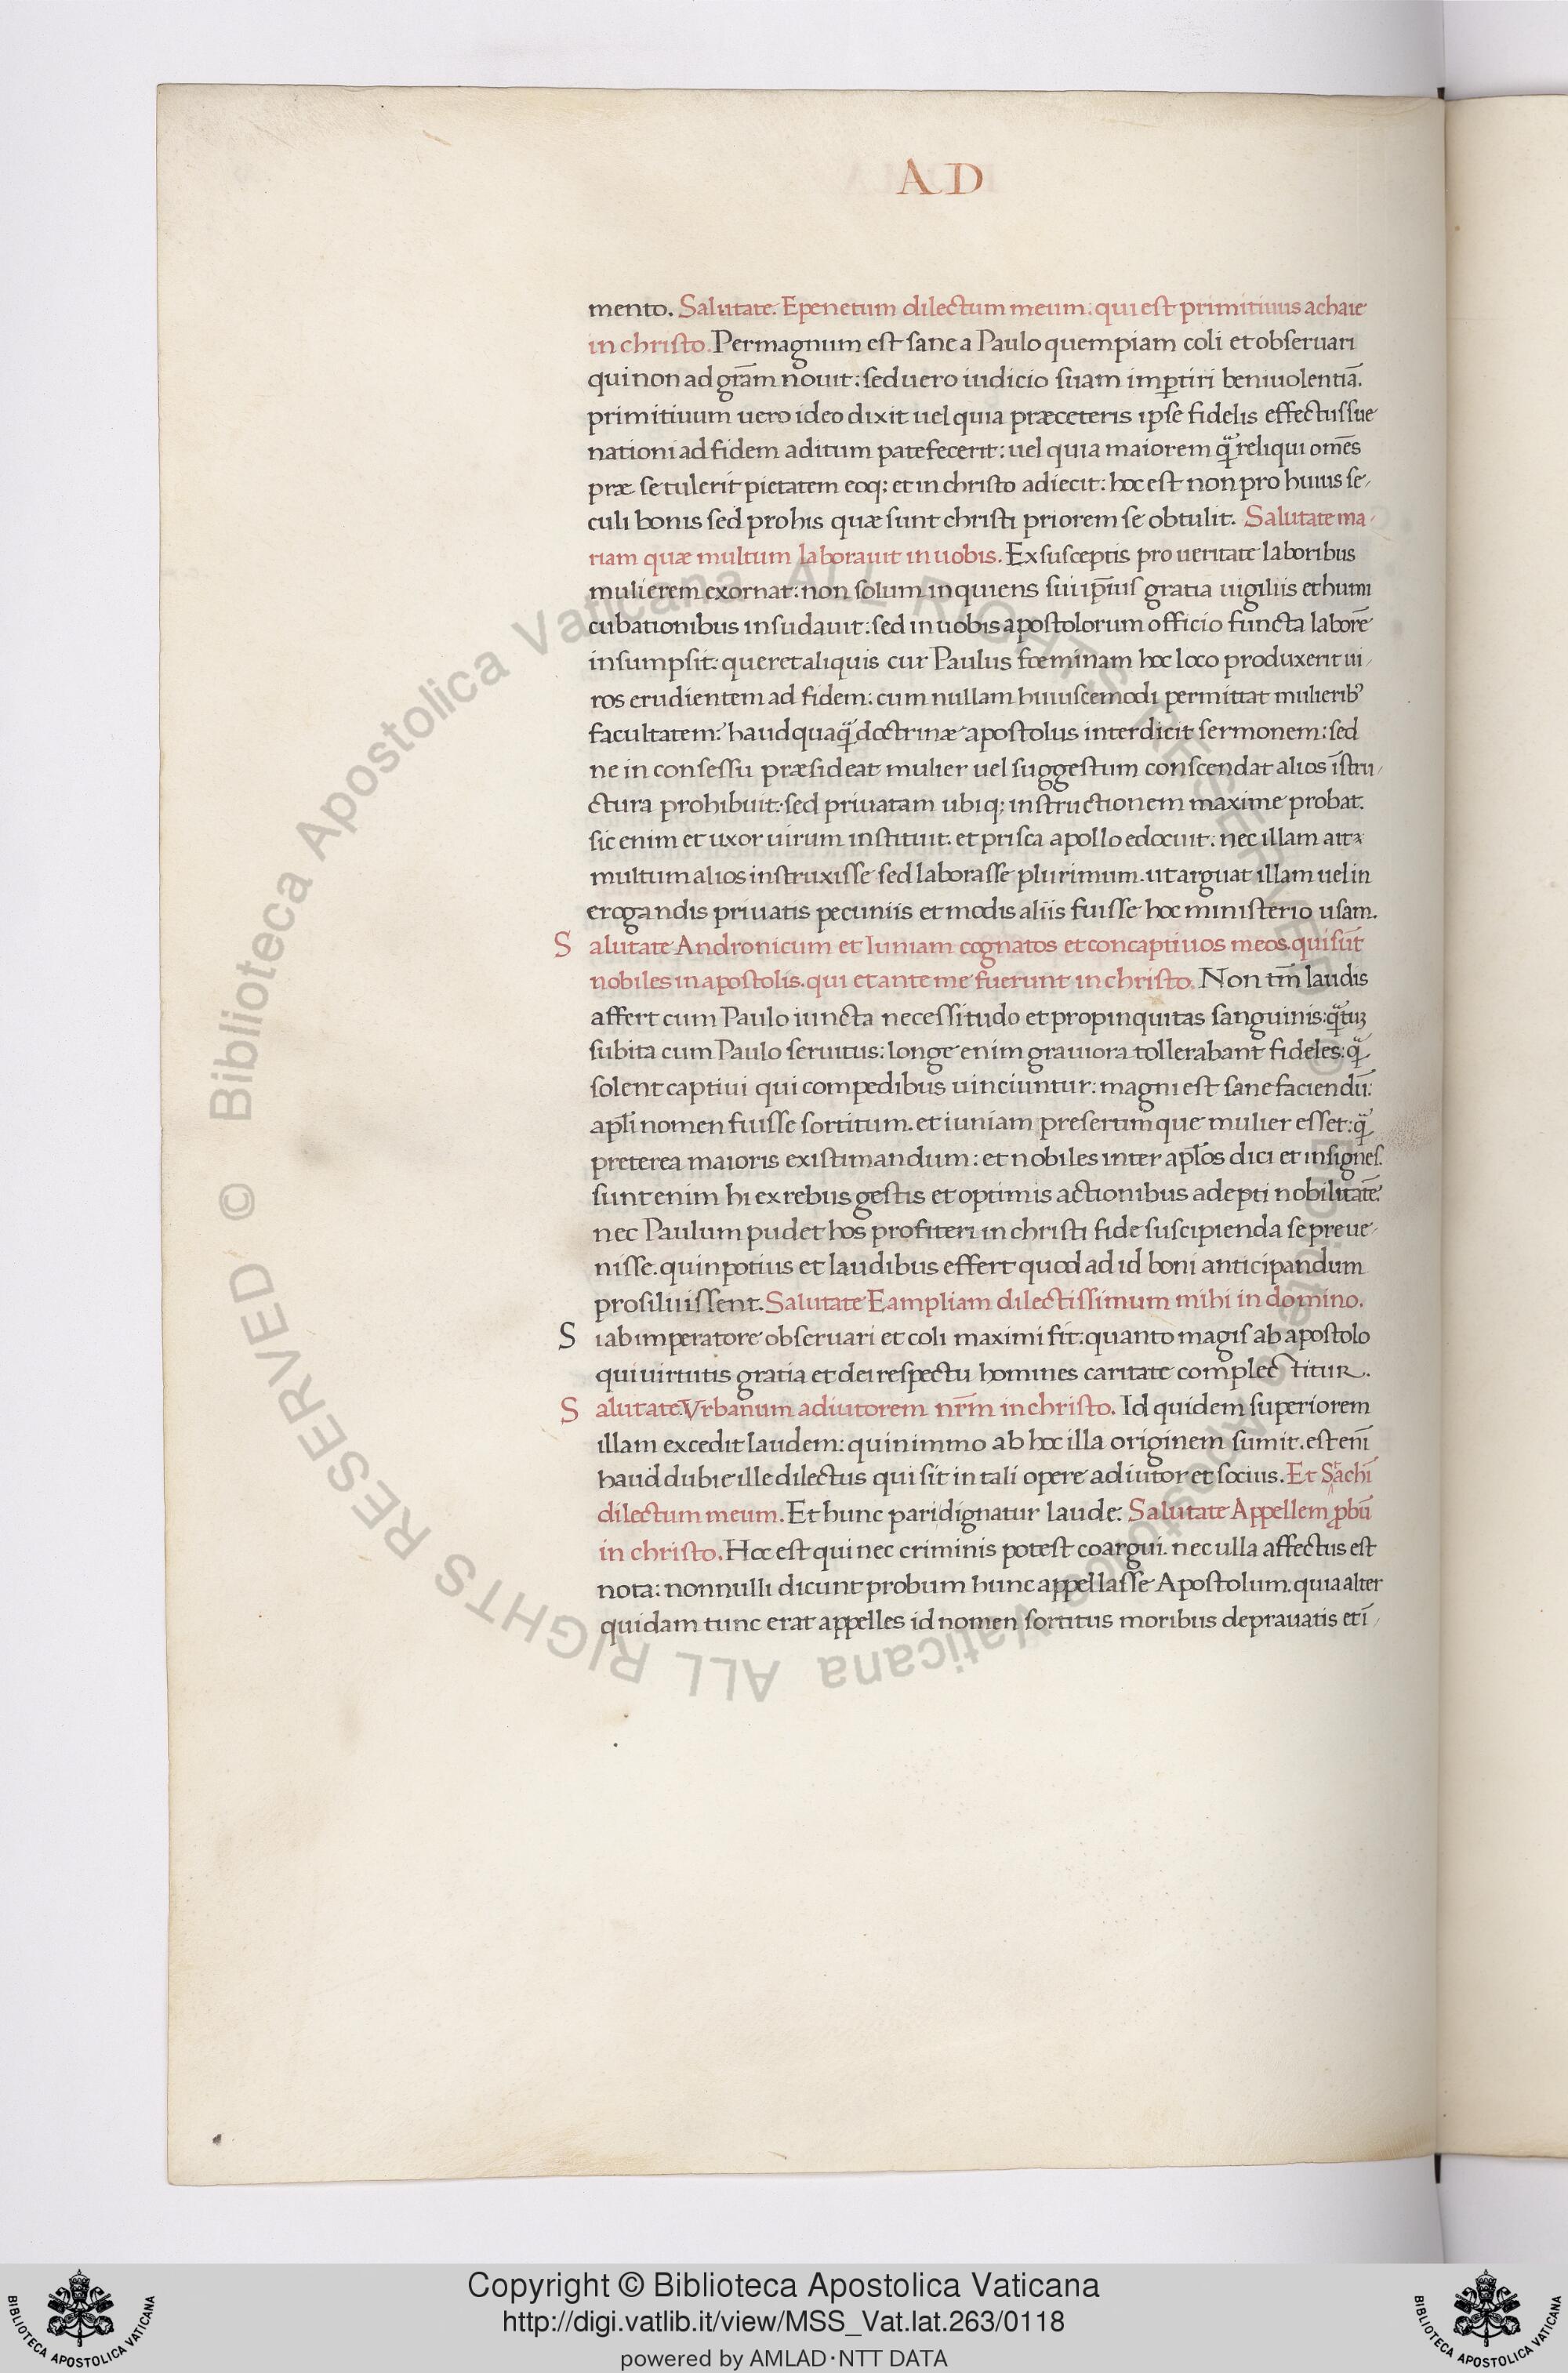 AD
mento. Salutate. Epenetum dilectum meum: qui est primitiuus achaie
in christo. Permagnum est sane a Paulo quempiam coli et obseruari
qui non ad grãm nouit: sed uero iudicio suam imꝑtiri beniuolentiã.
primitiuum uero ideo dixit uel quia præceteris ipse fidelis effectus sue
nationi ad fidem aditum patefecerit: uel quia maiorem q̃ reliqui omẽs
præ se tulerit pietatem eoq; et in christo adiecit: hoc est non pro huius se/
culi bonis sed pro his quæ sunt christi priorem se obtulit. Salutate ma/
riam quæ multum laborauit in uobis. Ex susceptis pro ueritate laboribus
mulierem exornat: non solum inquiens sui ip̄ius gratia uigiliis et humi
cubationibus insudauit: sed in uobis apostolorum officio functa laborẽ
insumpsit: queret aliquis cur Paulus fœminam hoc loco produxerit ui/
ros erudientem ad fidem: cum nullam huiuscemodi permittat mulierib᾽
facultatem: haudquaq̃ doctrinæ apostolus interdicit sermonem: sed
ne in consessu præsideat mulier uel suggestum conscendat alios ĩstru/
ctura prohibuit: sed priuatam ubiq; instructionem maxime probat.
sic enim et uxor uirum instituit. et prisca apollo edocuit: nec illam ait
multum alios instruxisse sed laborasse plurimum. ut arguat illam uel in
erogandis priuatis pecuniis et modis aliis fuisse hoc ministerio usam.
Salutate Andronicum et Iuniam cognatos et concaptiuos meos. qui sũt
nobiles in apostolis. qui et ante me fuerunt in christo. Non tm̃ laudis
affert cum Paulo iuncta necessitudo et propinquitas sanguinis: q̃tuꝫ
subita cum Paulo seruitus: longe enim grauiora tollerabant fideles: q̃
solent captiui qui compedibus uinciuntur: magni est sane faciendũ:
apl̃i nomen fuisse sortitum. et iuniam presertim que mulier esset: q̃
preterea maioris existimandum: et nobiles inter apl̃os dici et insignes.
sunt enim hi ex rebus gestis et optimis actionibus adepti nobilitatẽ:
nec Paulum pudet hos profiteri in christi fide suscipienda se preue/
nisse. quin potius et laudibus effert quod ad id boni anticipandum
prosiluissent. Salutate Eampliam dilectissimum mihi in domino.
Si ab imperatore obseruari et coli maximi fit: quanto magis ab apostolo
qui uirtutis gratia et dei respectu homines caritate complectitur.
Salutate. Vrbanum adiutorem nr̃m in christo. Id quidem superiorem
illam excedit laudem: quinimmo ab hoc illa originem sumit. est enĩ
haud dubie ille dilectus qui sit in tali opere adiutor et socius. Et Stachĩ
dilectum meum. Et hunc pari dignatur laude: Salutate Appellem ꝓbũ
in christo. Hoc est qui nec criminis potest coargui. nec ulla affectus est
nota: nonnulli dicunt probum hunc appellasse Apostolum. quia alter
quidam tunc erat appelles id nomen sortitus moribus deprauatis et ĩ/
© Biblioteca Apostolica Vaticana ALL RIGHTS RESERVED © Biblioteca Apostolica Vaticana ALL RIGHTS RESERVED
Copyright © Biblioteca Apostolica Vaticana
http://digi.vatlib.it/view/MSS_Vat.lat.263/0118
powered by AMLAD·NTT DATA
BIBLIOTECA APOSTOLICA VATICANA
BIBLIOTECA APOSTOLICA VATICANA